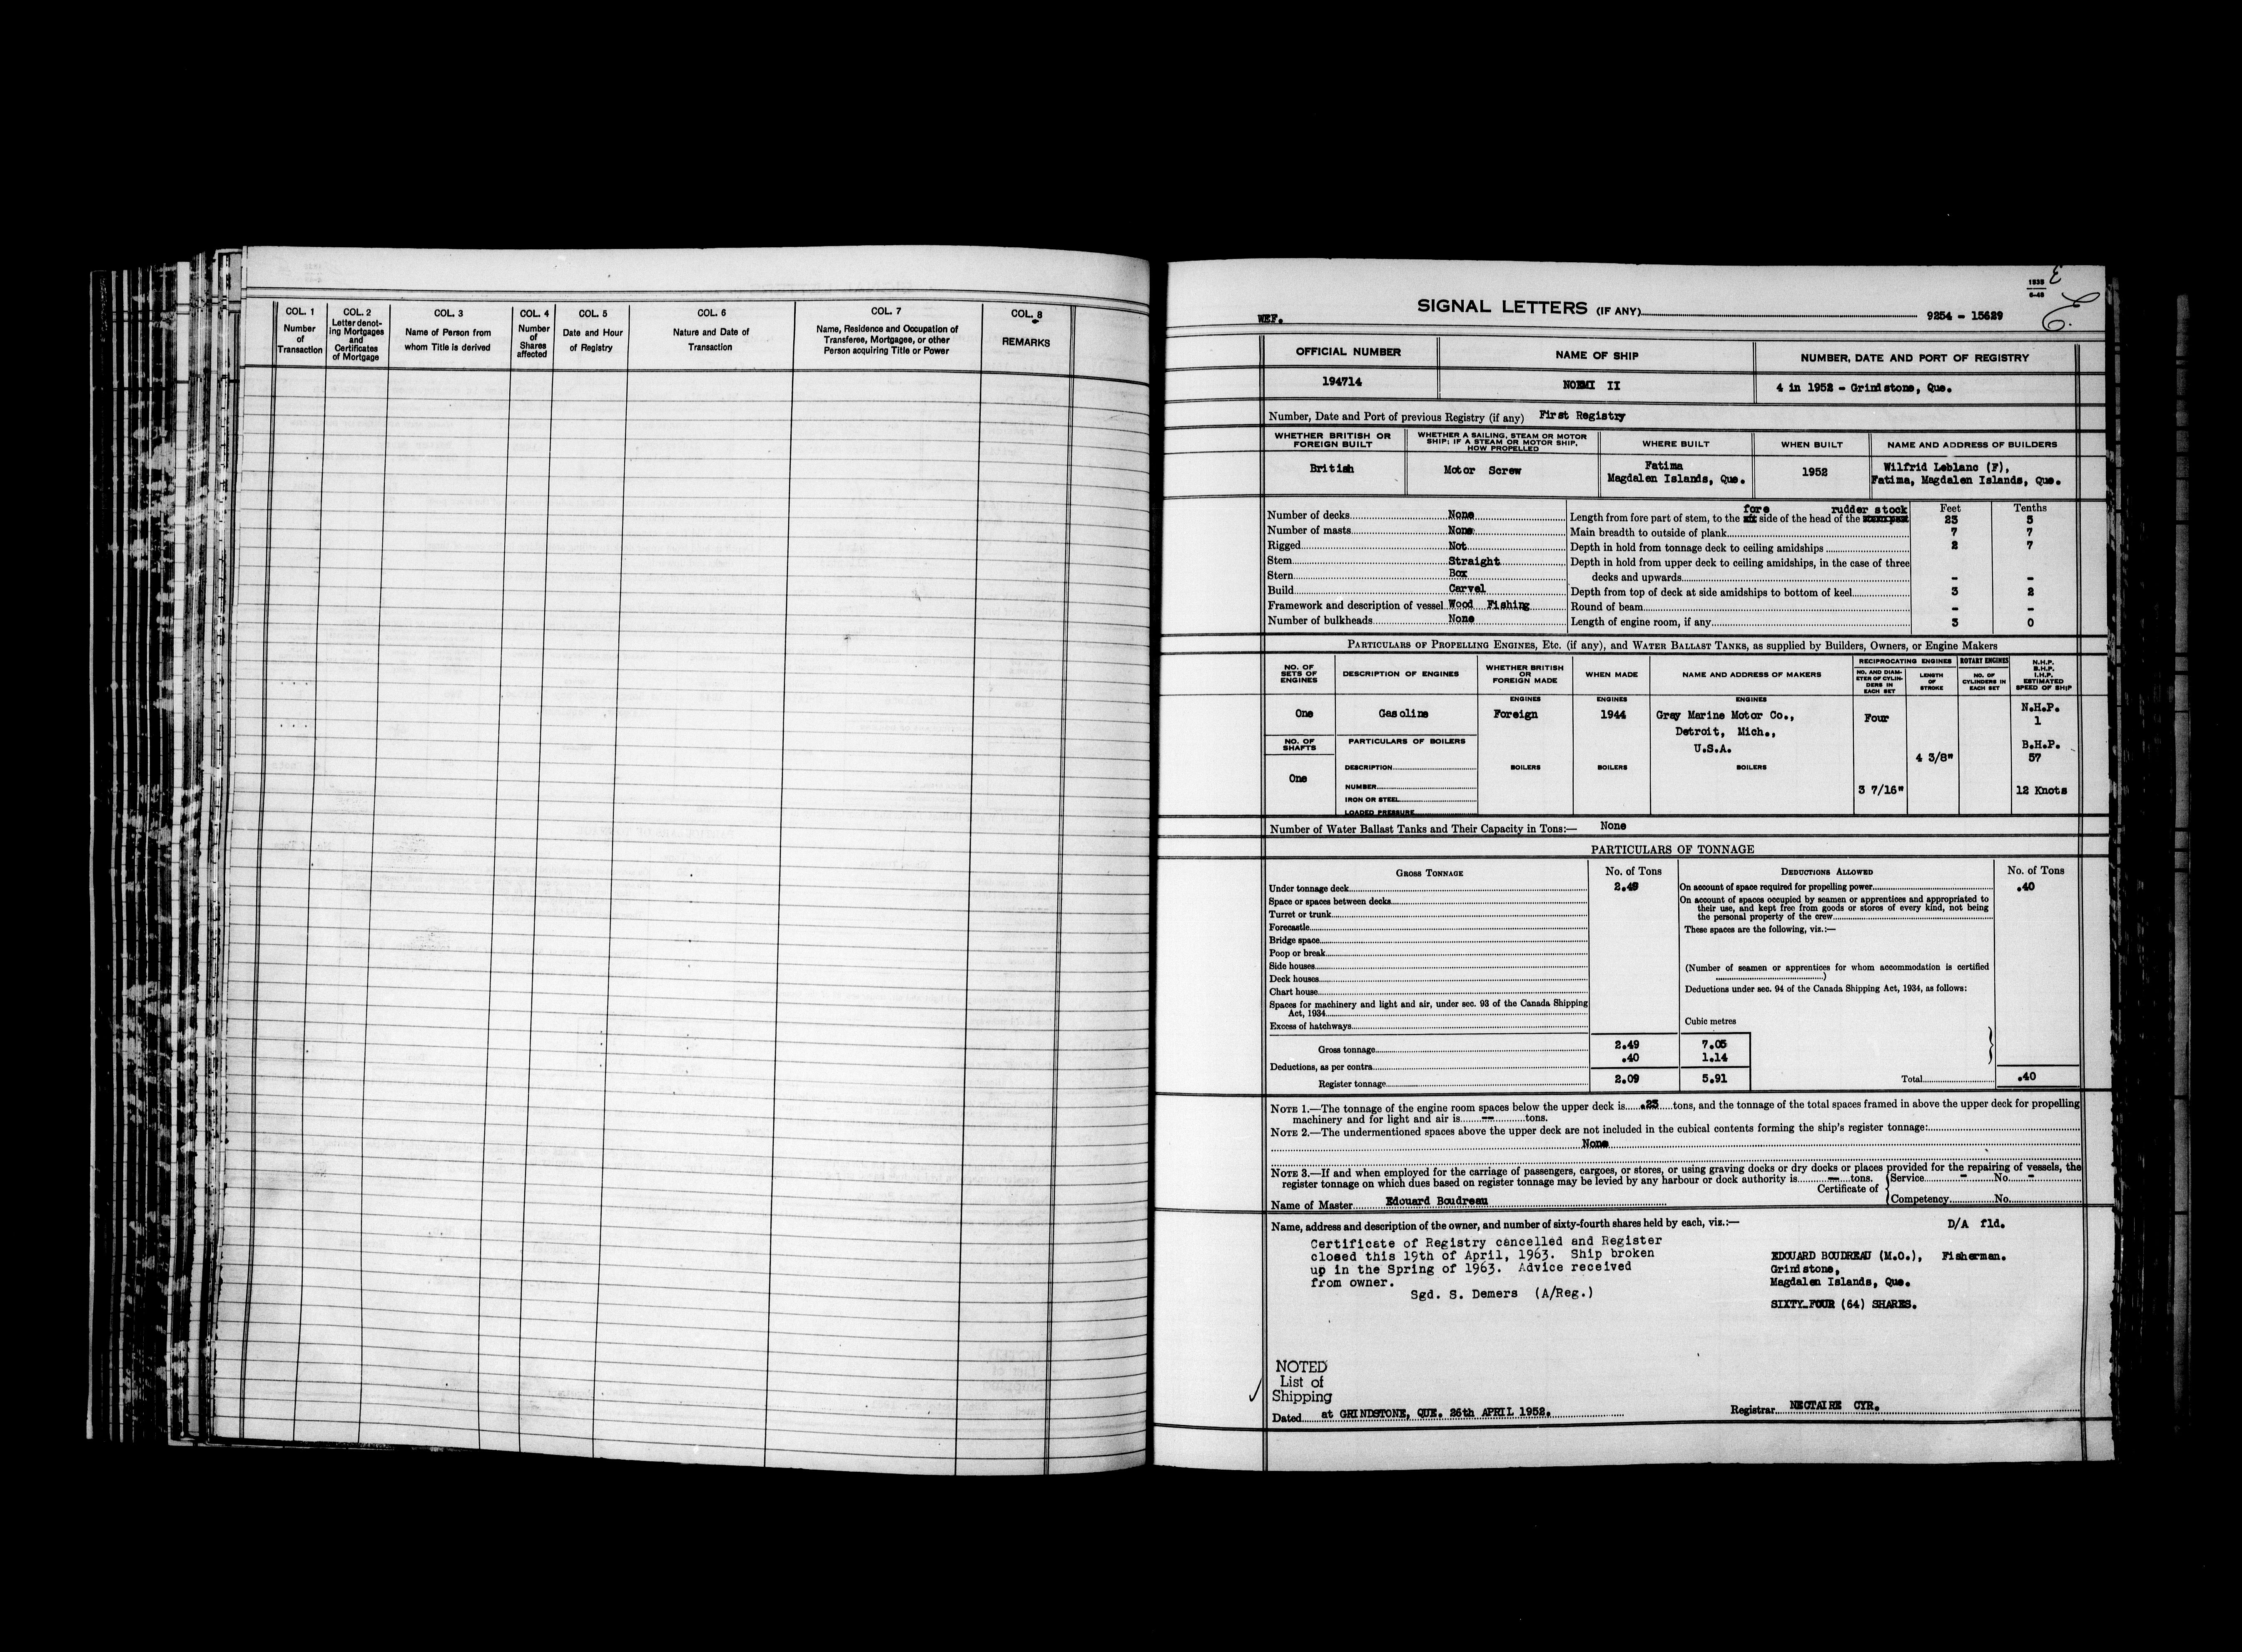 COL. 1
Number
of
Transaction
COL. 2
Letter denot-
ing Mortgages
and
Certificates
of Mortgage
COL. 3
Name of Person from
whom Title is derived
COL. 4
Number
of
Shares
affected
COL. 5
Date and Hour
of Registry
COL. 6
Nature and Date of
Transaction
COL. 7
Name, Residence and Occupation of
Transferee, Mortgagee, or other
Person acquiring Title or Power
COL. 8
REMARKS
WEF.
SIGNAL LETTERS (IF ANY)
9254 - 15629
OFFICIAL NUMBER
NAME OF SHIP
NUMBER, DATE AND PORT OF REGISTRY
194714
NOEMI II
4 in 1952 - Grindstone, Que.
Number, Date and Port of previous Registry (if any) First Registry
WHETHER BRITISH OR
FOREIGN BUILT
WHETHER A SAILING, STEAM OR MOTOR
SHIP; IF A STEAM OR MOTOR SHIP,
HOW PROPELLED
WHERE BUILT
WHEN BUILT
NAME AND ADDRESS OF BUILDERS
British
Motor Screw
Fatima
Magdalen Islands, Que.
1952
Wilfrid Leblanc (F),
Fatima, Magdalen Islands, Que.
Number of decks None
Number of masts None
Rigged Not
Stem Straight
Stern Box
Build Carvel
Framework and description of vessel Wood Fishing
Number of bulkheads None
fore rudder stock Feet Tenths
Length from fore part of stem, to the aft side of the head of the stern post 23 5
Main breadth to outside of plank 7 7
Depth in hold from tonnage deck to ceiling amidships 2 7
Depth in hold from upper deck to ceiling amidships, in the case of three
decks and upwards - -
Depth from top of deck at side amidships to bottom of keel 3 2
Round of beam - -
Length of engine room, if any 3 0
PARTICULARS OF PROPELLING ENGINES, ETC. (if any), and WATER BALLAST TANKS, as supplied by Builders, Owners, or Engine Makers
NO. OF
SETS OF
ENGINES
DESCRIPTION OF ENGINES
WHETHER BRITISH
OR
FOREIGN MADE
WHEN MADE
NAME AND ADDRESS OF MAKERS
RECIPROCATING ENGINES
NO. AND DIAM-
ETER OF CYLIN-
DERS IN
EACH SET
LENGTH
OF
STROKE
ROTARY ENGINES
NO. OF
CYLINDERS IN
EACH SET
N.H.P.
B.H.P.
I.H.P.
ESTIMATED
SPEED OF SHIP
ENGINES ENGINES ENGINES
One
Gasoline
Foreign
1944
Gray Marine Motor Co.,
Detroit, Mich.,
U.S.A.
Four
N.H.P.
1
NO. OF
SHAFTS
PARTICULARS OF BOILERS
B.H.P.
57
4 3/8"
One
DESCRIPTION
BOILERS BOILERS BOILERS
NUMBER
3 7/16"
12 Knots
IRON OR STEEL
LOADED PRESSURE
Number of Water Ballast Tanks and Their Capacity in Tons:— None
PARTICULARS OF TONNAGE
GROSS TONNAGE
No. of Tons
DEDUCTIONS ALLOWED
No. of Tons
Under tonnage deck 2.49
Space or spaces between decks
Turret or trunk
Forecastle
Bridge space
Poop or break
Side houses
Deck houses
Chart house
Spaces for machinery and light and air, under sec. 93 of the Canada Shipping
Act, 1934
Excess of hatchways
On account of space required for propelling power .40
On account of spaces occupied by seamen or apprentices and appropriated to
their use, and kept free from goods or stores of every kind, not being
the personal property of the crew
These spaces are the following, viz.:—
(Number of seamen or apprentices for whom accommodation is certified
)
Deductions under sec. 94 of the Canada Shipping Act, 1934, as follows:
Cubic metres
Gross tonnage 2.49 7.05
Deductions, as per contra .40 1.14
Register tonnage 2.09 5.91
Total .40
NOTE 1.—The tonnage of the engine room spaces below the upper deck is .23 tons, and the tonnage of the total spaces framed in above the upper deck for propelling
machinery and for light and air is -- tons.
NOTE 2.—The undermentioned spaces above the upper deck are not included in the cubical contents forming the ship's register tonnage:
None
NOTE 3.—If and when employed for the carriage of passengers, cargoes, or stores, or using graving docks or dry docks or places provided for the repairing of vessels, the
register tonnage on which dues based on register tonnage may be levied by any harbour or dock authority is -- tons.
Certificate of
Service - No. -
Competency No.
Name of Master Edouard Boudreau
Name, address and description of the owner, and number of sixty-fourth shares held by each, viz.:—
D/A fld.
Certificate of Registry cancelled and Register
closed this 19th of April, 1963. Ship broken
up in the Spring of 1963. Advice received
from owner.
Sgd. S. Demers (A/Reg.)
EDOUARD BOUDREAU (M.O.), Fisherman.
Grindstone,
Magdalen Islands, Que.
SIXTY-FOUR (64) SHARES.
NOTED
List of
Shipping
Dated at GRINDSTONE, QUE. 26th APRIL 1952.
Registrar NECTAIRE CYR.